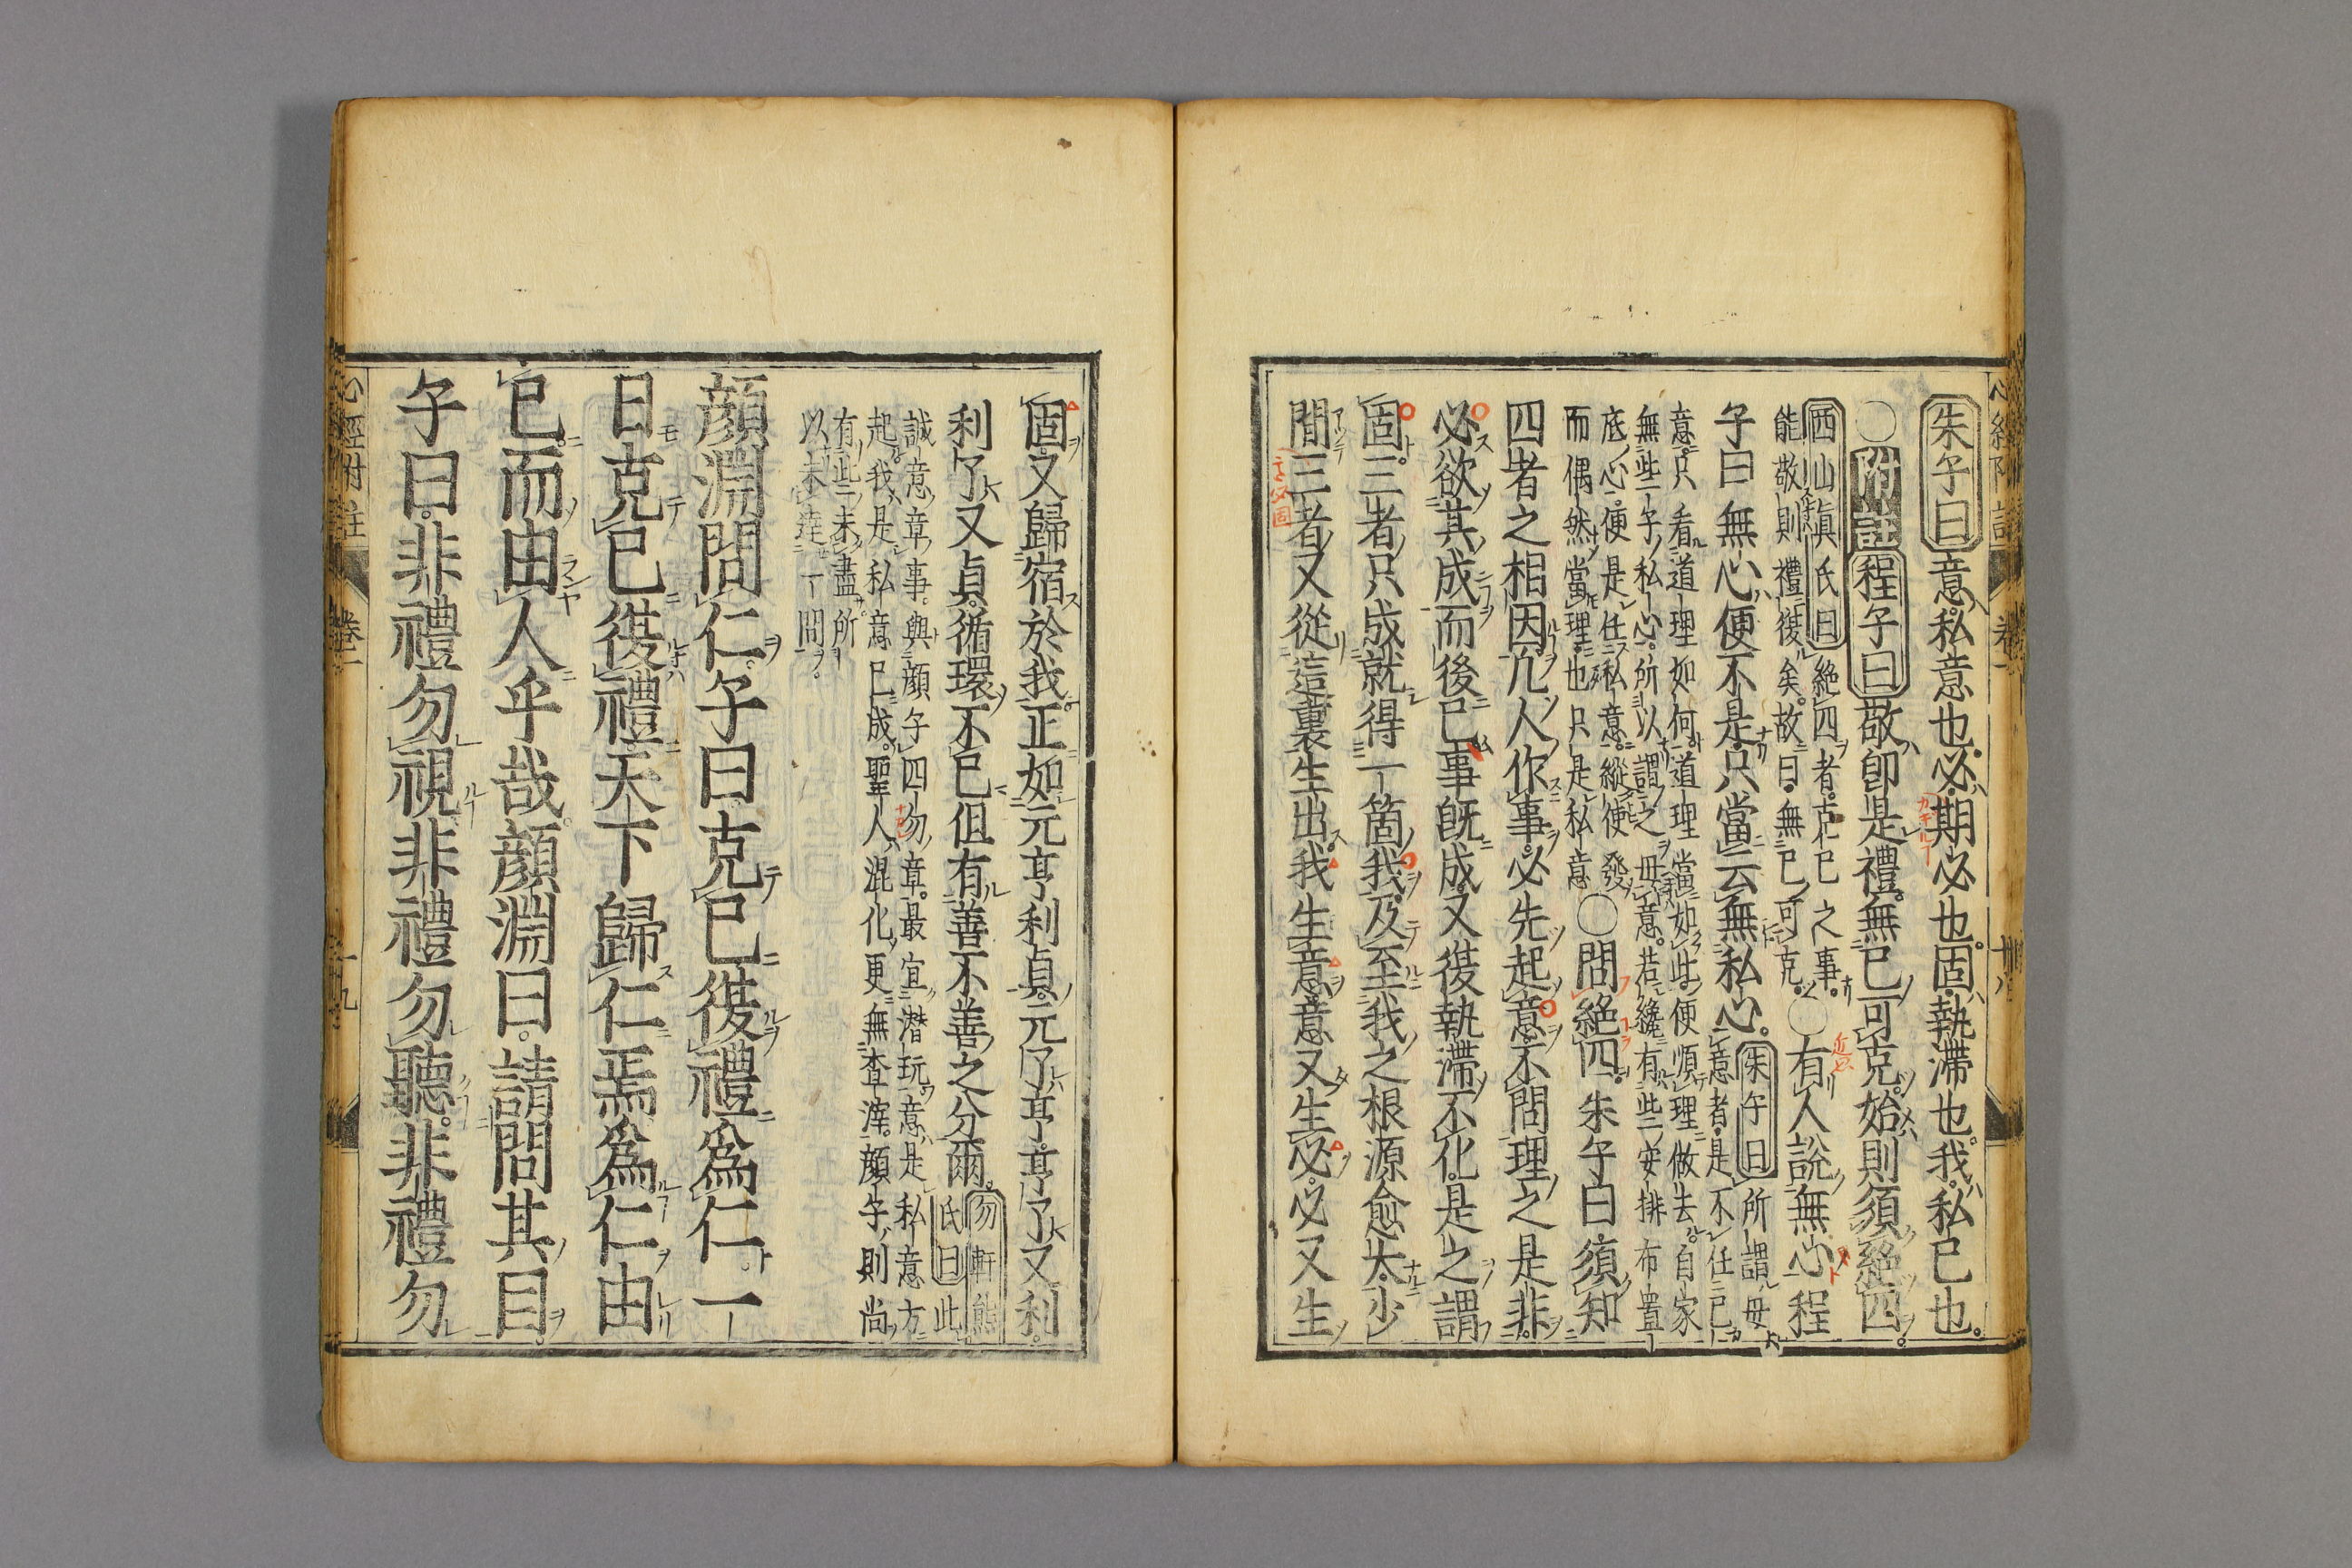 心經附註 卷一 十八
朱子曰意私意也必期必也固執滯也我私已也
○附註程子曰敬卽是禮無已可克始則須絶四
西山眞氏曰絶四者克已之事
能敬則禮復矣故曰無已可克○有人說無心程
子曰無心便不是只當云無私心朱子曰所謂毋
意者是不任己
意只看道理如何道理當如此便順理做去自家
無些子私心所以謂之毋意若纔有些安排布置
底心便是任私意縱使發
而偶然當理也只是私意○問絶四朱子曰須知
四者之相因凡人作事必先起意不問理之是非
必欲其成而後已事旣成又復執滯不化是之謂
固三者只成就得一箇我及至我之根源愈大少
間三者又從這裏生出我生意意又生必必又生
固又歸宿於我正如元亨利貞元了亨亨了又利
利了又貞循環不已但有善不善之分爾勿軒熊
氏曰此
誠意章事與顔子四勿章最宜潜玩意是私意方
起我是私意已成聖人混化更無査滓顔子則尚
有些未盡所
以未達一間
顔淵問仁子曰克已復禮爲仁一
日克已復禮天下歸仁焉爲仁由
已而由人乎哉顔淵曰請問其目
子曰非禮勿視非禮勿聽非禮勿
心經附註 卷一 十九